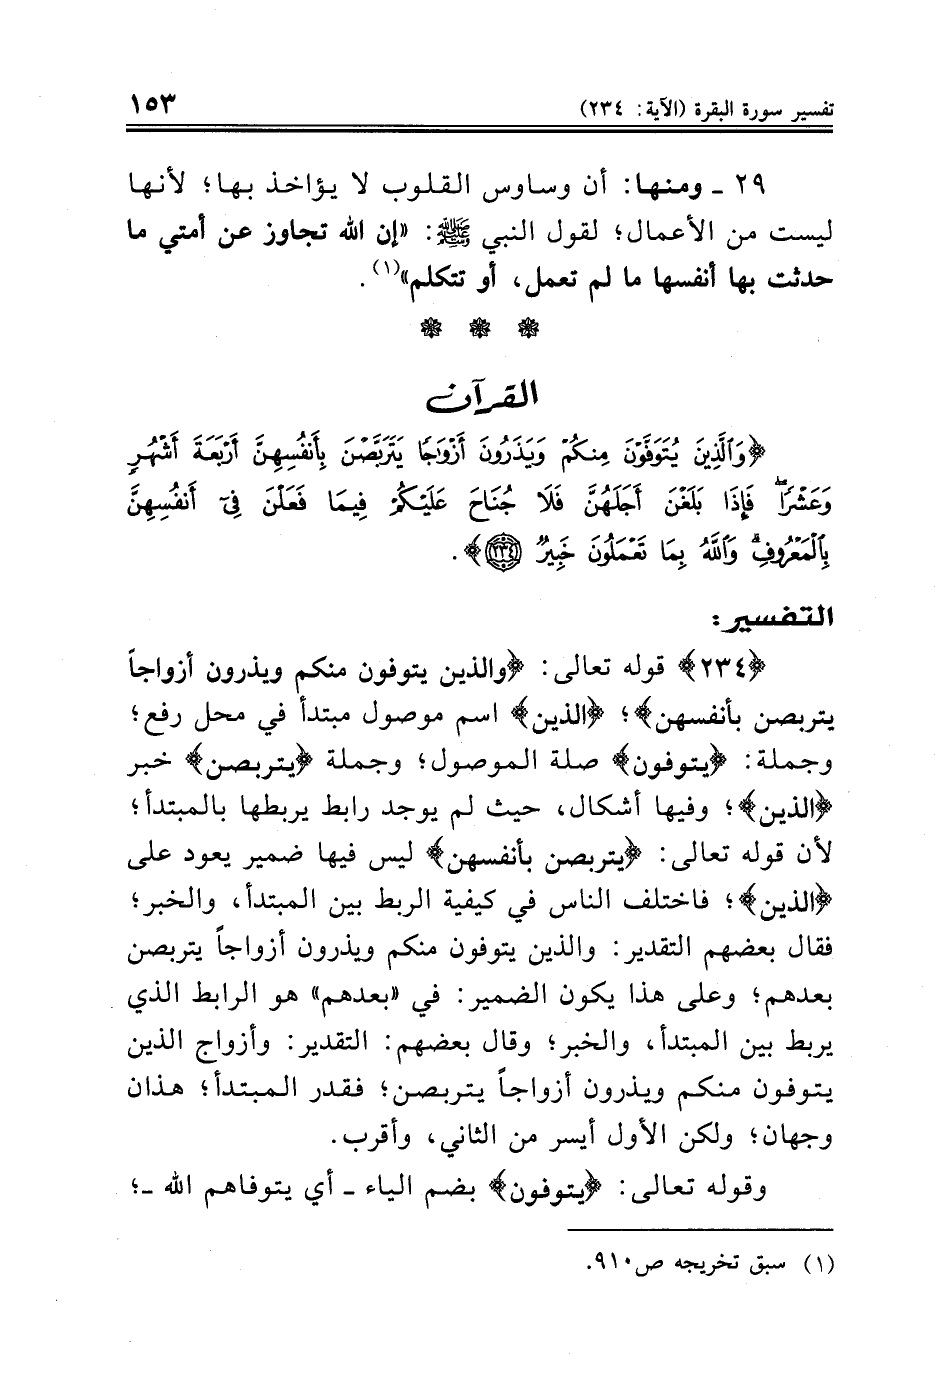 تفسير سورة البقرة (الآية: ٢٣٤)
١٥٣
٢٩ ـ ومنها: أن وساوس القلوب لا يؤاخذ بها؛ لأنها
ليست من الأعمال؛ لقول النبي ﷺ: «إن الله تجاوز عن أمتي ما
حدثت بها أنفسها ما لم تعمل، أو تتكلم»(١).
القرآن
﴿وَٱلَّذِينَ يُتَوَفَّوۡنَ مِنكُمۡ وَيَذَرُونَ أَزۡوَٰجٗا يَتَرَبَّصۡنَ بِأَنفُسِهِنَّ أَرۡبَعَةَ أَشۡهُرٖ
وَعَشۡرٗاۖ فَإِذَا بَلَغۡنَ أَجَلَهُنَّ فَلَا جُنَاحَ عَلَيۡكُمۡ فِيمَا فَعَلۡنَ فِيٓ أَنفُسِهِنَّ
بِٱلۡمَعۡرُوفِۗ وَٱللَّهُ بِمَا تَعۡمَلُونَ خَبِيرٞ ٢٣٤﴾.
التفسير:
﴿٢٣٤﴾ قوله تعالى: ﴿والذين يتوفون منكم ويذرون أزواجاً
يتربصن بأنفسهن﴾؛ ﴿الذين﴾ اسم موصول مبتدأ في محل رفع؛
وجملة: ﴿يتوفون﴾ صلة الموصول؛ وجملة ﴿يتربصن﴾ خبر
﴿الذين﴾؛ وفيها أشكال، حيث لم يوجد رابط يربطها بالمبتدأ؛
لأن قوله تعالى: ﴿يتربصن بأنفسهن﴾ ليس فيها ضمير يعود على
﴿الذين﴾؛ فاختلف الناس في كيفية الربط بين المبتدأ، والخبر؛
فقال بعضهم التقدير: والذين يتوفون منكم ويذرون أزواجاً يتربصن
بعدهم؛ وعلى هذا يكون الضمير: في «بعدهم» هو الرابط الذي
يربط بين المبتدأ، والخبر؛ وقال بعضهم: التقدير: وأزواج الذين
يتوفون منكم ويذرون أزواجاً يتربصن؛ فقدر المبتدأ؛ هذان
وجهان؛ ولكن الأول أيسر من الثاني، وأقرب.
وقوله تعالى: ﴿يتوفون﴾ بضم الياء ـ أي يتوفاهم الله ـ؛
(١) سبق تخريجه ص٩١٠.